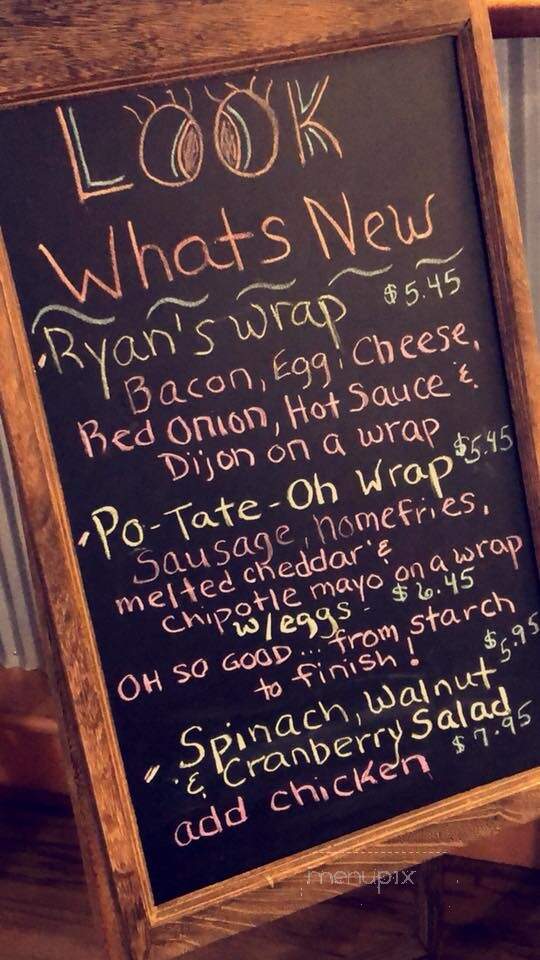 LOOK
Whats New
Ryan's Wrap $5.45
Bacon, Egg, Cheese,
Red Onion, Hot Sauce &
Dijon on a wrap
Po-Tate-Oh Wrap $5.45
Sausage, homefries,
melted cheddar &
chipotle mayo on a wrap
w/eggs - $6.45
OH SO GOOD... from starch
to finish!
Spinach, Walnut $5.95
& Cranberry Salad
add chicken $7.95
menupix